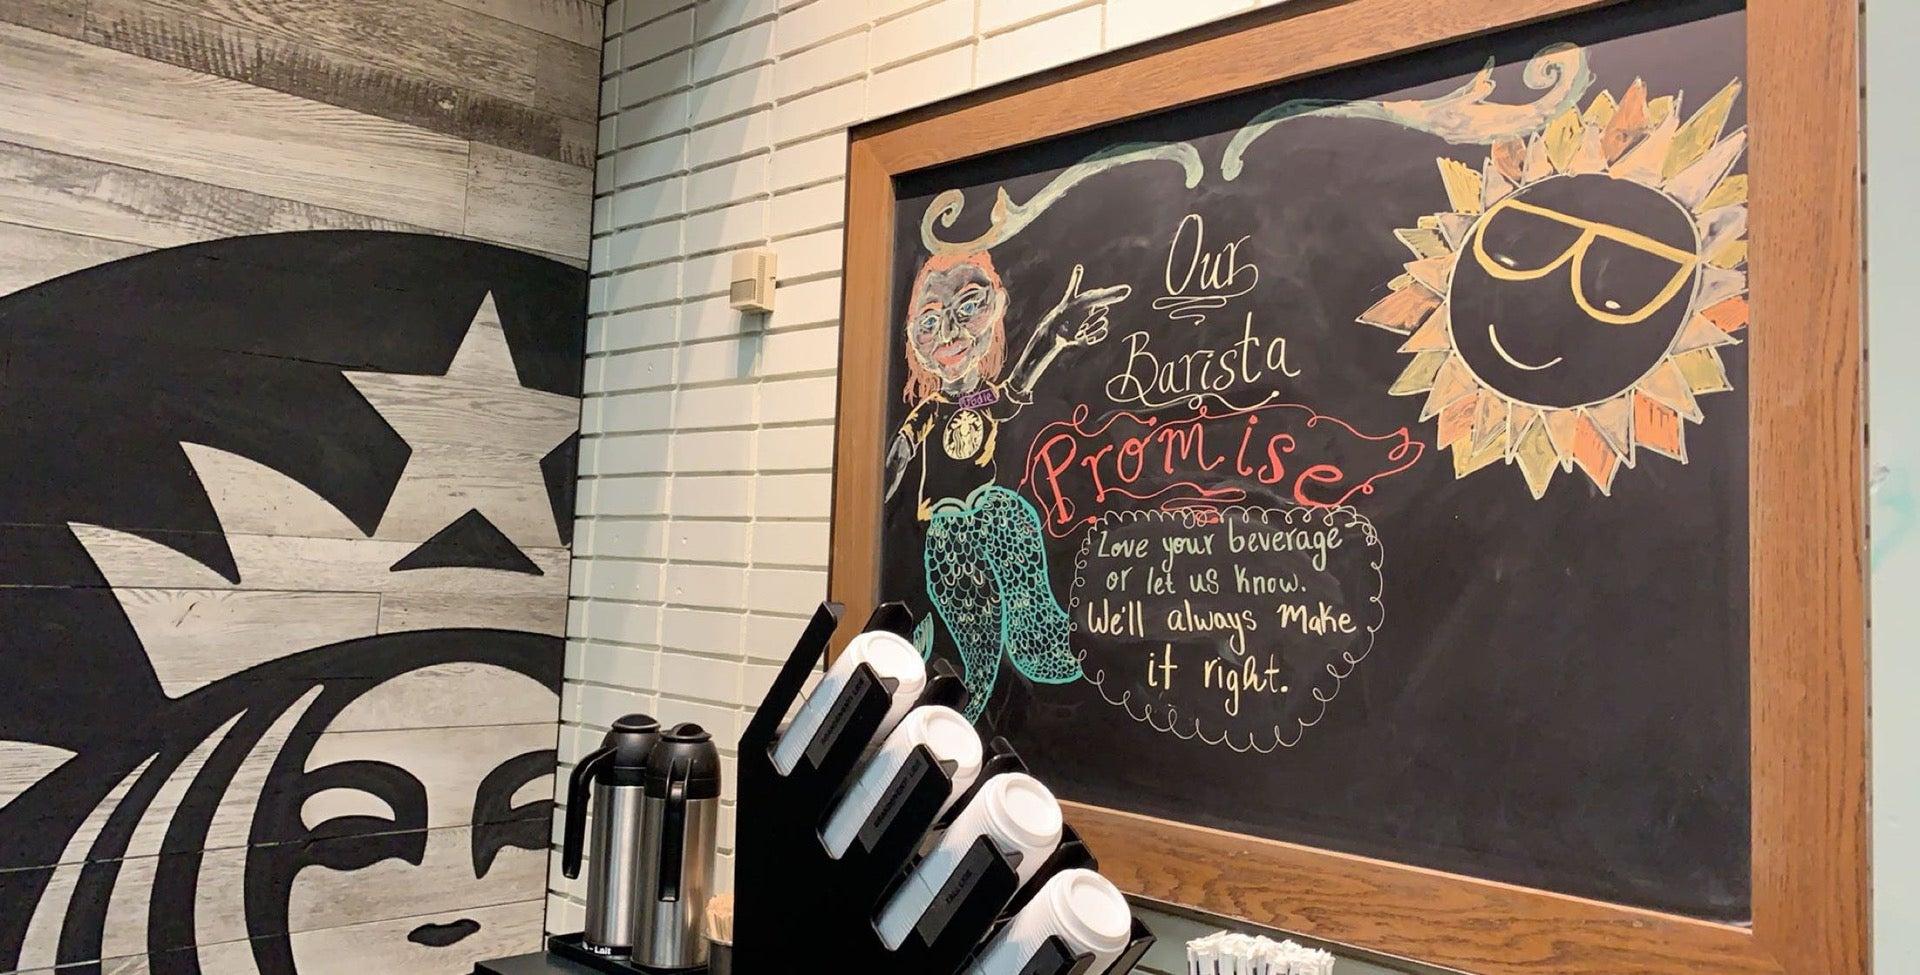 Our
Barista
Promise
Love your beverage
or let us know.
We'll always make
it right.
TALL LIDS
- Lait